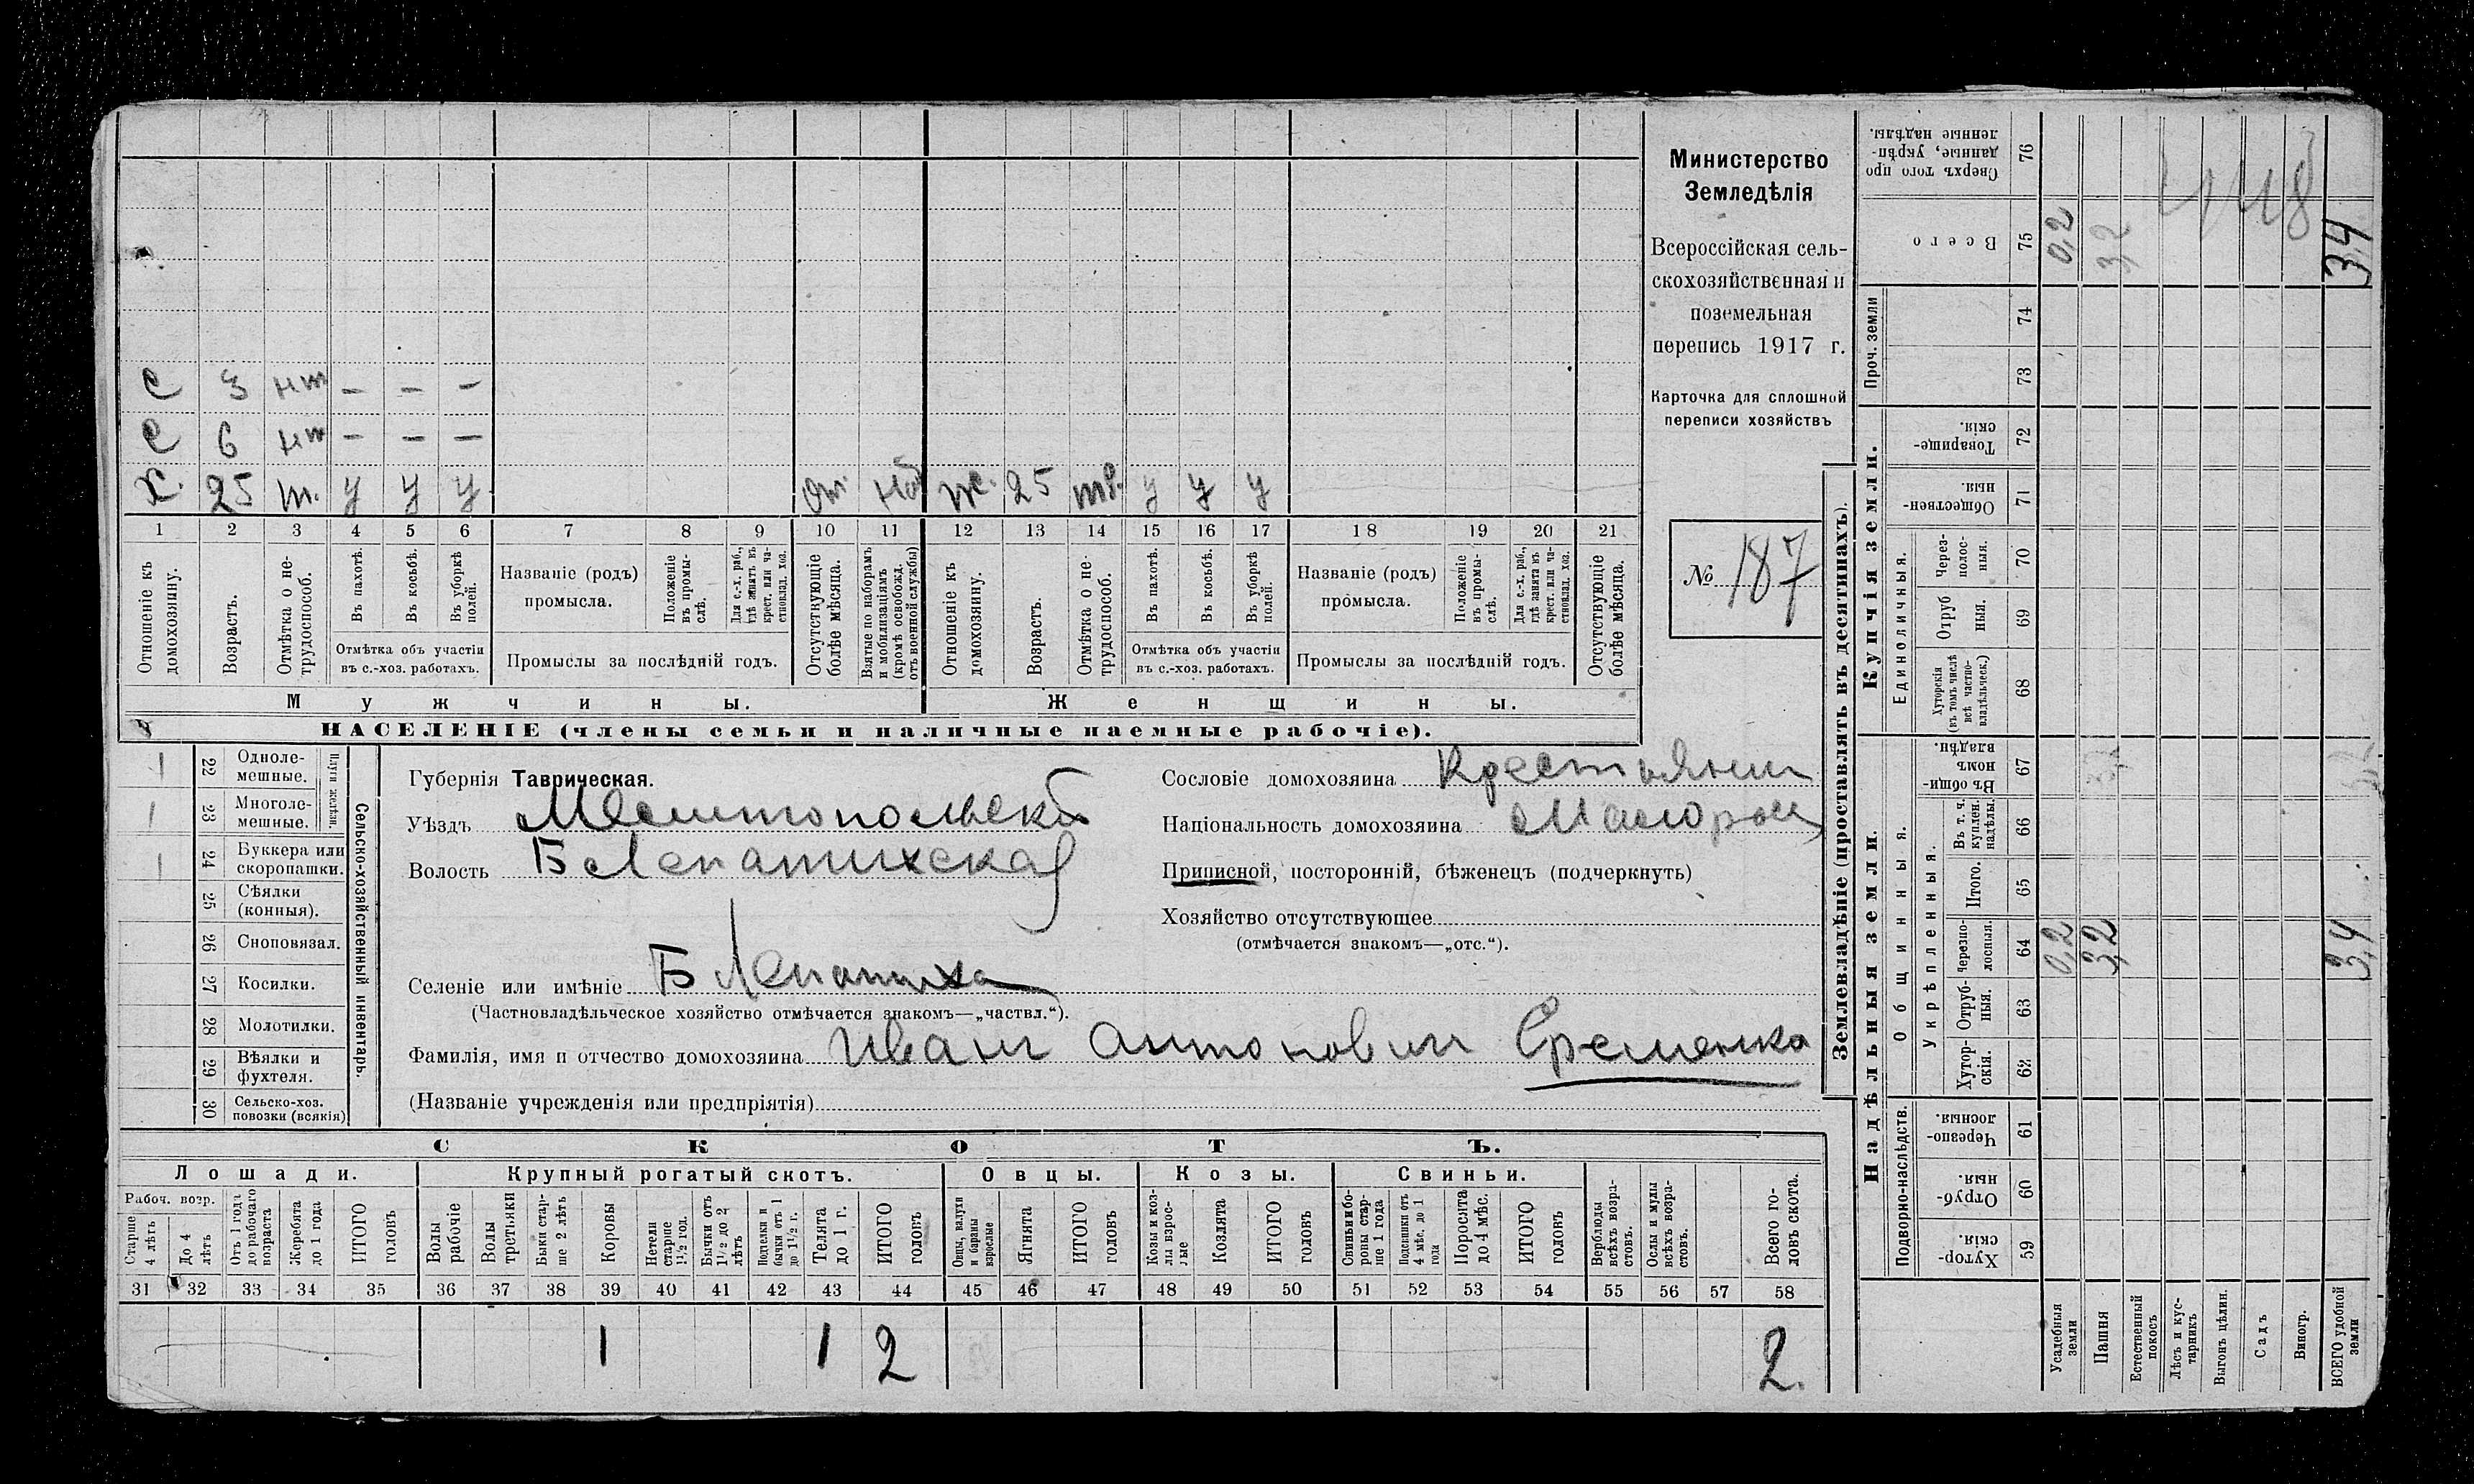 С 3 нт — — —
С 6 нт — — —
Х. 25 т. У У У от. наб ж. 25 тр. У У У
1 2 3 4 5 6 7 8 9 10 11 12 13 14 15 16 17 18 19 20 21
Отношеніе къ домохозяину.
Возрастъ.
Отмѣтка о нетрудоспособ.
Въ пахотѣ.
Въ косьбѣ.
Въ уборкѣ полей.
Отмѣтка объ участіи
въ с.-хоз. работахъ.
Названіе (родъ)
промысла.
Положеніе въ промыслѣ.
Для с.-х. раб., гдѣ занятъ въ крест. или частновлад. хоз.
Промыслы за послѣдній годъ.
Отсутствующіе болѣе мѣсяца.
Взятые по наборамъ и мобилизаціямъ (кромѣ освобожд. отъ военной службы)
Отношеніе къ домохозяину.
Возрастъ.
Отмѣтка о нетрудоспособ.
Въ пахотѣ.
Въ косьбѣ.
Въ уборкѣ полей.
Отмѣтка объ участіи
въ с.-хоз. работахъ.
Названіе (родъ)
промысла.
Положеніе въ промыслѣ.
Для с.-х. раб., гдѣ занята въ крест. или частновлад. хоз.
Промыслы за послѣдній годъ.
Отсутствующіе болѣе мѣсяца.
Мужчины. Женщины.
НАСЕЛЕНІЕ (члены семьи и наличные наемные рабочіе).
Министерство
Земледѣлія
Всероссійская сель-
скохозяйственная и
поземельная
перепись 1917 г.
Карточка для сплошной
переписи хозяйствъ
№ 187
1 22 Однолемешные.
1 23 Многолемешные.
Плуги желѣзн.
1 24 Буккера или скоропашки.
25 Сѣялки (конныя).
26 Сноповязал.
27 Косилки.
28 Молотилки.
29 Вѣялки и фухтеля.
30 Сельско-хоз. повозки (всякія)
Сельско-хозяйственный инвентарь.
Губернія Таврическая.
Уѣздъ Мелитопольскій
Волость Б Лепатихская
Селеніе или имѣніе Б Лепатиха
(Частновладѣльческое хозяйство отмѣчается знакомъ—„частвл.“).
Фамилія, имя и отчество домохозяина Иван Антонович Еременко
(Названіе учрежденія или предпріятія)
Сословіе домохозяина Крестьянин
Національность домохозяина Малорос
Приписной, посторонній, бѣженецъ (подчеркнуть)
Хозяйство отсутствующее
(отмѣчается знакомъ—„отс.“).
СКОТЪ.
Лошади. Крупный рогатый скотъ. Овцы. Козы. Свиньи.
Рабоч. возр.
Старше 4 лѣтъ
До 4 лѣтъ
Отъ 1 года до рабочаго возраста
Жеребята до 1 года
ИТОГО головъ
Волы рабочіе
Волы третьяки
Быки старше 2 лѣтъ
Коровы
Нетели старше 1½ год.
Бычки отъ 1½ до 2 лѣтъ
Подтелки и бычки отъ 1 до 1½ г.
Телята до 1 г.
ИТОГО головъ
Овцы, валухи и бараны взрослые
Ягнята
ИТОГО головъ
Козы и козлы взрослые
Козлята
ИТОГО головъ
Свиньи и боровы старше 1 года
Подсвинки отъ 4 мѣс. до 1 года
Поросята до 4 мѣс.
ИТОГО головъ
Верблюды всѣхъ возрастовъ.
Ослы и мулы всѣхъ возрастовъ.
Всего головъ скота.
31 32 33 34 35 36 37 38 39 40 41 42 43 44 45 46 47 48 49 50 51 52 53 54 55 56 57 58
1 1 2 2.
Землевладѣніе (проставлять въ десятинахъ).
Надѣльныя земли. Купчія земли. Проч. земли
Подворно-наслѣдств.
Общинныя.
Укрѣпленныя.
Единоличныя.
Сверхъ того проданные, укрѣпленные надѣлы. 76
Всего 75 0,2 3,2 3,4
74
73
Товарищескія. 72
Общественныя. 71
Черезполосныя. 70
Отрубныя. 69
Хуторскія (въ томъ числѣ всѣ частновладѣльческ.) 68
Въ общинномъ владѣн. 67
Въ т. ч. куплен. надѣлы. 66
Итого. 65
Черезполосныя. 64 0,2 3,2 3,4
Отрубныя. 63
Хуторскія. 62
Черезполосныя. 61
Отрубныя. 60
Хуторскія. 59
Усадебныя земли
Пашня
Естественный покосъ
Лѣсъ и кустарникъ
Выгонъ цѣлин.
Садъ
Виногр.
ВСЕГО удобной земли